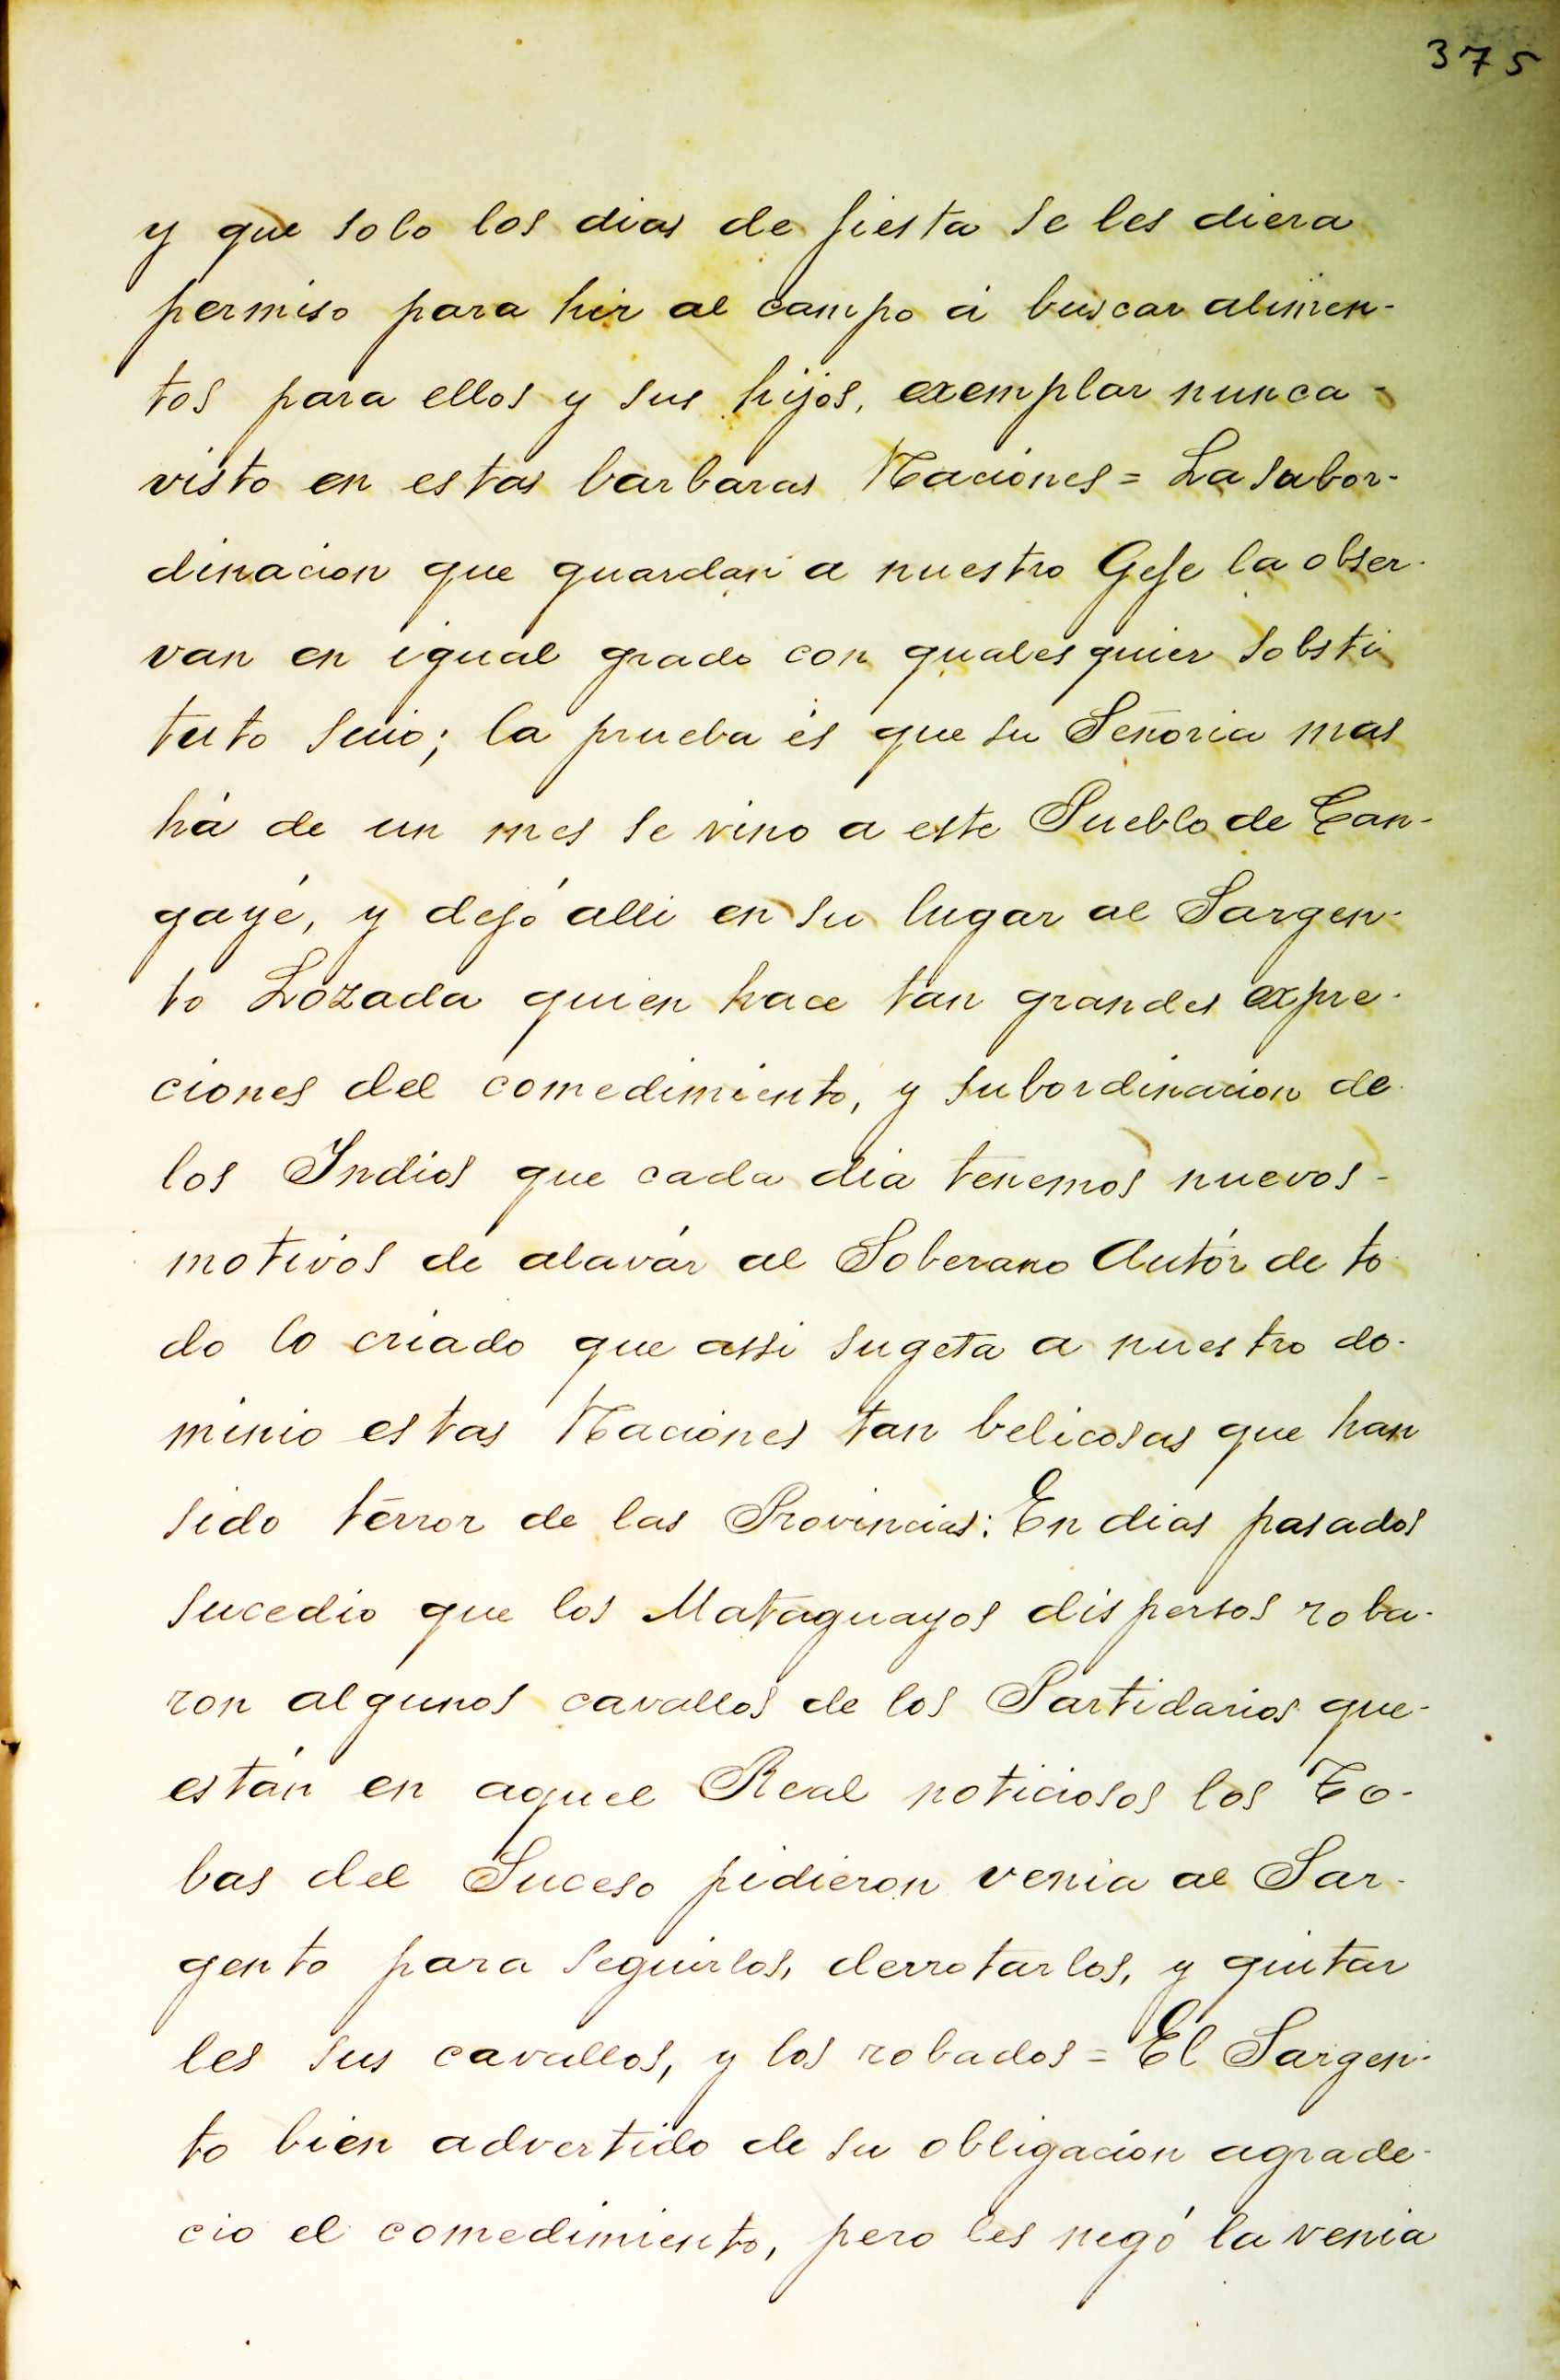 375
y que solo los dias de fiesta se les diera
permiso para hir al campo á buscar alimen-
tos para ellos y sus hijos, exemplar nunca -
visto en estas barbaras Naciones = La subor-
dinacion que guardan a nuestro Gefe la obser-
van en igual grado con qualesquier sobsti
tuto suio; la prueba és que su Señoria mas
há de un mes se vino a este Pueblo de Can-
gayé, y dejó alli en su lugar al Sargen-
to Lozada quien hace tan grandes expre-
ciones del comedimiento, y subordinacion de
los Indios que cada dia tenemos nuevos -
motivos de alavár al Soberano Autór de to
do lo criado que assi sugeta a nuestro do-
minio estas Naciones tan belicosas que han
sido terror de las Provincias: En dias pasados
sucedio que los Mataguayos dispersos roba-
ron algunos cavallos de los Partidarios que-
están en aquel Real noticiosos los To-
bas del Suceso pidieron venia al Sar-
gento para seguirlos, derrotarlos, y quitar
les sus cavallos, y los robados = El Sargen-
to bien advertido de su obligacion agrade-
cio el comedimiento, pero les negó la venia